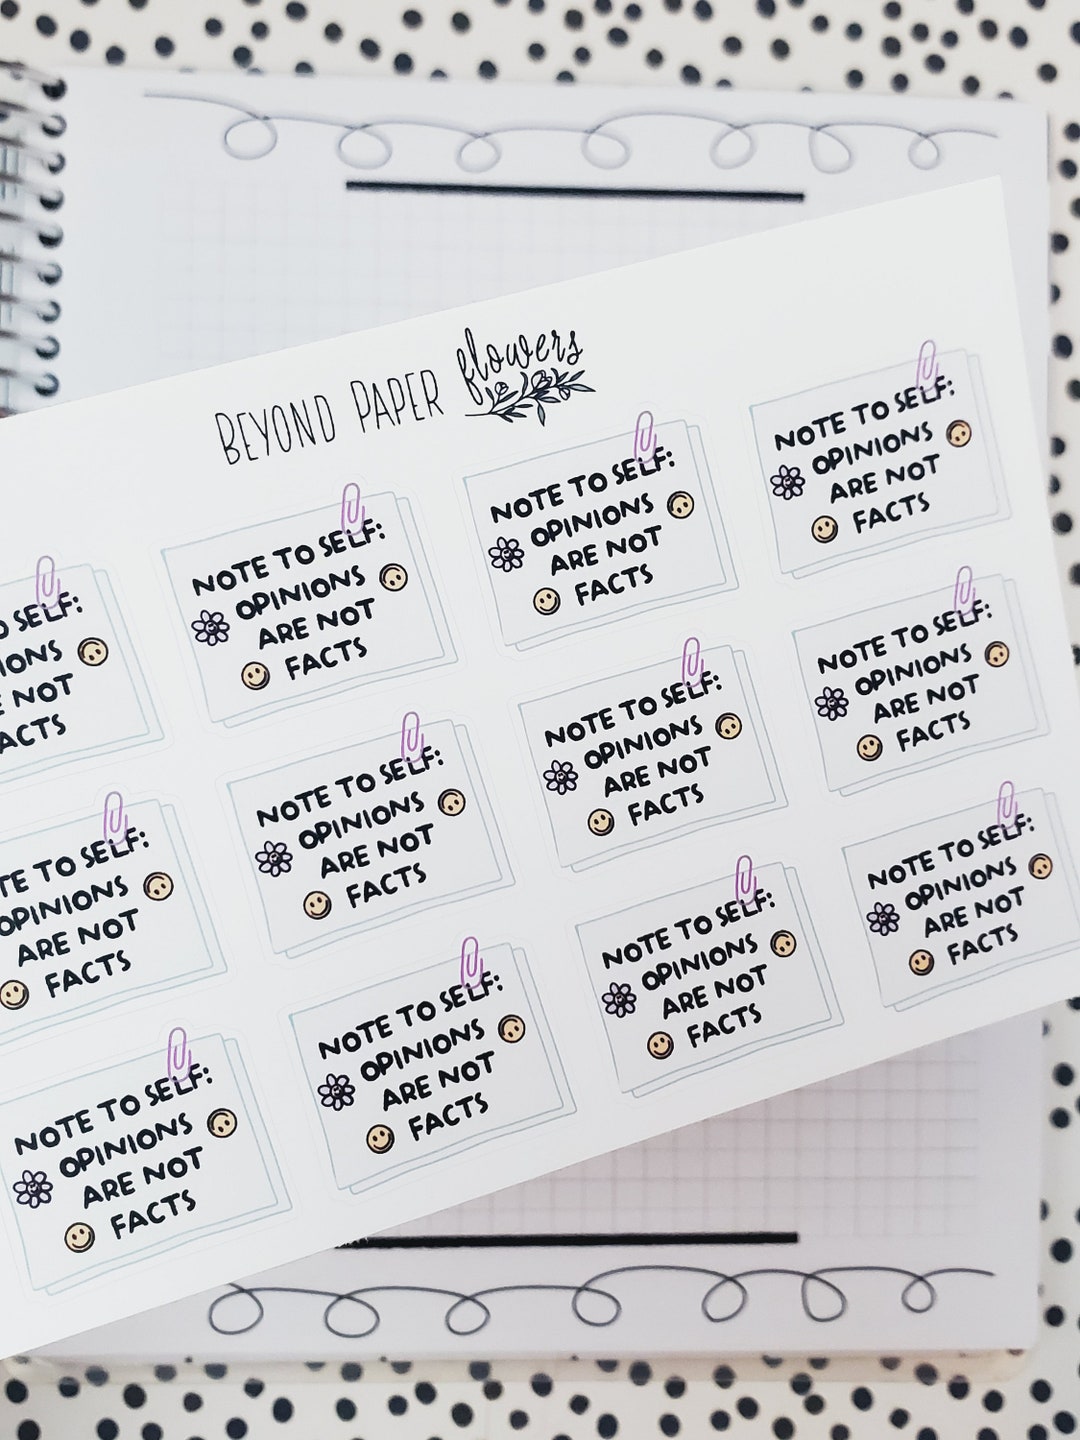 BEYOND PAPER flowers
NOTE TO SELF:
OPINIONS
ARE NOT
FACTS
NOTE TO SELF:
OPINIONS
ARE NOT
FACTS
NOTE TO SELF:
OPINIONS
ARE NOT
FACTS
O SELF:
IONS
E NOT
ACTS
NOTE TO SELF:
OPINIONS
ARE NOT
FACTS
NOTE TO SELF:
OPINIONS
ARE NOT
FACTS
NOTE TO SELF:
OPINIONS
ARE NOT
FACTS
TE TO SELF:
OPINIONS
ARE NOT
FACTS
NOTE TO SELF:
OPINIONS
ARE NOT
FACTS
NOTE TO SELF:
OPINIONS
ARE NOT
FACTS
NOTE TO SELF:
OPINIONS
ARE NOT
FACTS
NOTE TO SELF:
OPINIONS
ARE NOT
FACTS